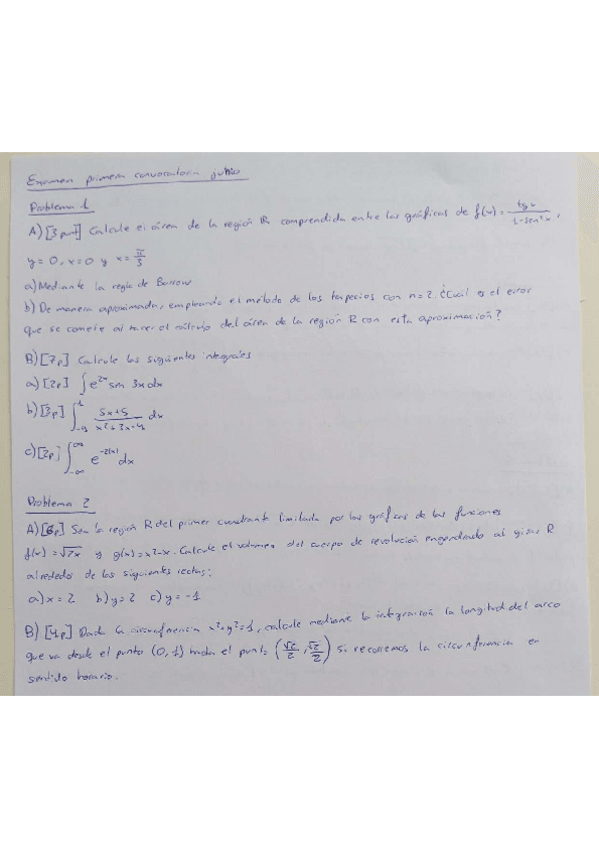 Examen primera convocatoria junio
Problema 1
A) [3 pt] Calcule el área de la región R comprendida entre las gráficas de f(x) = tg x / 1-sen²x,
y = 0, x = 0 y x = π/3
a) Mediante la regla de Barrow
b) De manera aproximada, empleando el método de los trapecios con n=2. ¿Cuál es el error
que se comete al hacer el cálculo del área de la región R con esta aproximación?
B) [7p] Calcule las siguientes integrales
a) [2p] ∫ e^{2x} sen 3x dx
b) [3p] ∫ 5x+5 / x²+3x-4 dx
c) [2p] ∫_{-∞}^{∞} e^{-2|x|} dx
Problema 2
A) [6p] Sea la región R del primer cuadrante limitada por las gráficas de las funciones
f(x) = y g(x) = x²-x. Calcule el volumen del cuerpo de revolución engendrado al girar R
alrededor de las siguientes rectas:
a) x = 2 b) y = 2 c) y = -1
B) [4p] Dada la circunferencia x²+y²=1, calcule mediante la integración la longitud del arco
que va desde el punto (0,1) hasta el punto (√2/2, √2/2) si recorremos la circunferencia en
sentido horario.